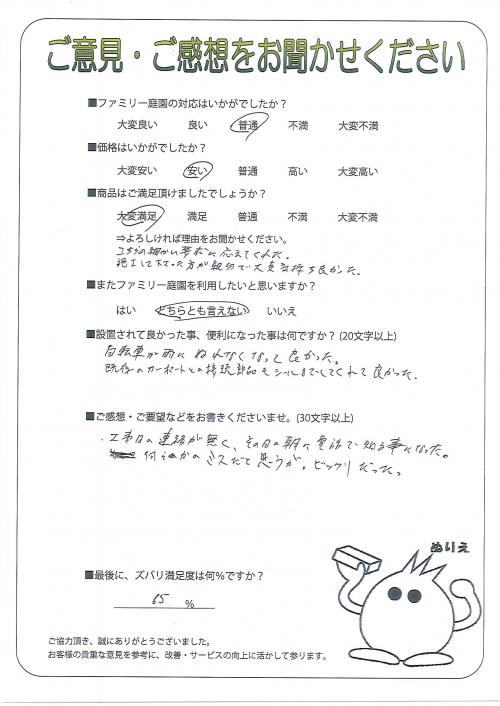 ご意見・ご感想をお聞かせください
■ファミリー庭園の対応はいかがでしたか？
大変良い 良い 普通 不満 大変不満
■価格はいかがでしたか？
大変安い 安い 普通 高い 大変高い
■商品はご満足頂けましたでしょうか？
大変満足 満足 普通 不満 大変不満
⇒よろしければ理由をお聞かせください。
こちらの細かい要求に応えてくれた。
施工して下さった方が親切で大変気持ち良かった。
■またファミリー庭園を利用したいと思いますか？
はい どちらとも言えない いいえ
■設置されて良かった事、便利になった事は何ですか？(20文字以上)
自転車が雨にぬれなくなって良かった。
既存のカーポートとの接続部品もシールまでしてくれて良かった。
■ご感想・ご要望などをお書きくださいませ。(30文字以上)
・工事日の連絡が無く、その日の朝に電話で知る事になった。
何らかのミスだと思うが、ビックリだった。
ぬりえ
■最後に、ズバリ満足度は何%ですか？
65 %
ご協力頂き、誠にありがとうございました。
お客様の貴重な意見を参考に、改善・サービスの向上に活かして参ります。